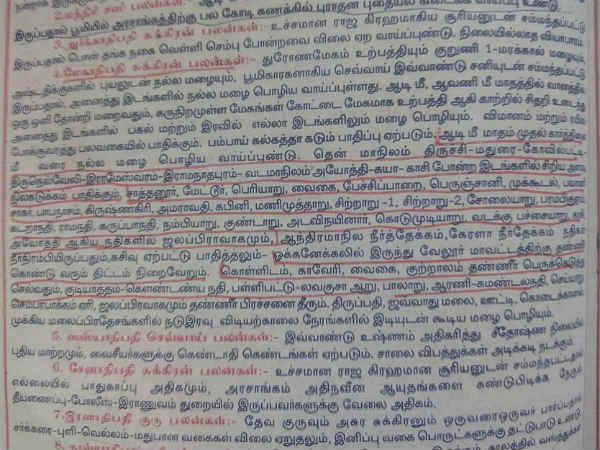 2.மந்திரி சனி பலன்கள்:-
இருப்பதால் பூமியில் அரசாங்கத்திற்கு பல கோடி கணக்கில் புராதன புதையல்
3.அர்க்காதிபதி சுக்கிரன் பலன்கள்:- உச்சமான ராஜ கிரஹமாகிய சூரியனுடன் சம்மந்தப்பட்டு
இருப்பதால் பொன் தங்க நகை வெள்ளி செம்பு போன்றவை விலை ஏற வாய்ப்புண்டு. நிலையில்லாத வியாபாரம்
4.மேகாதிபதி சுக்கிரன் பலன்கள்:- துரோணமேகம் உற்பத்தியும் குறுணி 1-மரக்கால் மழையும்,
அஷ்டதிக்குகளில் புயலுடன் நல்ல மழையும், பூமிகாரகனாகிய செவ்வாய் இவ்வாண்டு சனியுடன் சம்மந்தப்பட்டு
இருப்பதால், அனைத்து இடங்களில் நல்ல மழை பொழிய வாய்ப்புள்ளது. ஆடி மீ, ஆவணி மீ மாதத்தில் வானத்தில்
ஒரு ஒளி தோன்றி மறைவதும், சுருதிறமுள்ள மேகங்கள் கோட்டை மேகமாக உற்பத்தி ஆகி காற்றில் சிதறி உடைந்து
அனைத்து இடங்கள் பகல் மற்றும் இரவில் எல்லா இடங்களிலும் மழை பொழியும். விமானம் மற்றும் ரயில்
போக்குவரத்து பலவகையில் பாதிக்கும். பம்பாய் கல்கத்தா கடும் பாதிப்பு ஏற்படும். ஆடி மீ மாதம் முதல் கார்த்திகை
மீ வரை நல்ல மழை பொழிய வாய்ப்புண்டு. தென் மாநிலம் திருச்சி-மதுரை-கோவில்பட்டி-
திருநெல்வேலி-இராமேஸ்வரம்-இராமநாதபுரம்-வடமாநிலம் அயோத்தி-கயா-காசி போன்ற இடங்களில் சிறிய அளவு
நிலநடுக்கம் பாதிக்கும். சாத்தனூர், மேட்டூர், பெரியாறு, வைகை, பேச்சிப்பாறை, பெருஞ்சாணி, முக்கூடல், பவானி
சாகர், பாபநாசம், கிருஷ்ணகிரி, அமராவதி, கபினி, மணிமுத்தாறு, சிற்றாறு-1, சிற்றாறு-2, சோலையாறு, பரம்பிக்குளம்
கடறாநதி, ராமநதி, கருப்பாநதி, நம்பியாறு, குண்டாறு, அடவிநயினார், கொடுமுடியாறு, வடக்கு பச்சையாறு,
அயோத்தி ஆகிய நதிகளில் ஜலப்பிரவாகமும், ஆந்திரமாநில நீர்த்தேக்கம், கேரளா நீர்த்தேக்கம்
நீர்நிரம்பியிருப்பதும், கசிவு ஏற்பட்டு பாதித்தலும்- ஒக்கனேக்கலில் இருந்து வேலூர் மாவட்டத்திற்கு தண்ணீர்
கொண்டு வரும் திட்டம் நிறைவேறும். கொள்ளிடம், காவேரி, வைகை, குற்றாலம் தண்ணீர் பெருக்கெடுத்து
செல்வதும், குடியாத்தம்-கௌண்டண்ய நதி, பள்ளிபட்டு-லவகுசா ஆறு, பாலாறு, ஆரணி-கமண்டலநதி, செய்யாறு
செம்பரம்பாக்கம் ஏரி, ஜலப்பிரவாகமும் தண்ணீர் பிரச்சனை தீரும். திருப்பதி, ஜவ்வாது மலை, ஊட்டி, கொடைக்கானல்
முக்கிய மலைப்பிரதேசங்களில் நடுஇரவு விடியற்காலை நேரங்களில் இடியுடன் கூடிய மழை பொழியும்.
5. ஸஸ்யாதிபதி செவ்வாய் பலன்கள்:- இவ்வாண்டு உஷ்ணம் அதிகரித்து சீதோஷ்ண நிலையில்
புதிய மாற்றமும், வைசியர்களுக்கு கெண்டாதி கெண்டங்கள் ஏற்படும். சாலை விபத்துக்கள் அடிக்கடி நடக்கும்.
6. சேனாதிபதி சுக்கிரன் பலன்கள்:- உச்சமான ராஜ கிரஹமான சூரியனுடன் சம்மந்தப்பட்டதால்
எல்லையில் பாதுகாப்பு அதிகமும், அரசாங்கம் அதிநவீன ஆயுதங்களை கண்டுபிடிக்க நேரும்
தீயணைப்பு-போலீஸ்-இராணுவம் துறையில் இருப்பவர்களுக்கு வேலை அதிகம்.
7.இரஸாதிபதி குரு பலன்கள்:- தேவ குருவும் அசுர சுக்கிரனும் ஒருவரைஒருவர் பார்ப்பதால்
சர்க்கரை-புளி-வெல்லம்-மதுபான வகைகள் விலை ஏறுதலும், இனிப்பு வகை பொருட்களுக்கு தட்டுபாடு